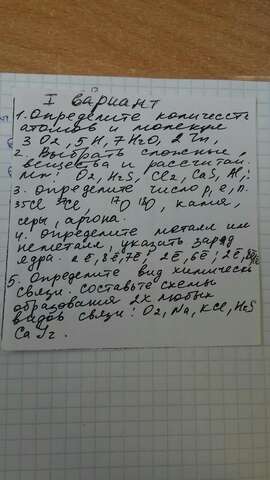 I вариант
1. Определите количеств
атомов и молекул
3 O2, 5 H, 7 H2O, 2 Zn,
2. Выбрать сложные,
вещества и рассчитай.
Mr: O2, H2S, Cl2, CaS, H,:
3. Определите число p, e, n.
35Cl 37Cl, 17O 18O, калия,
серы, аргона.
4. Определите металл им
неметалл, указать заряд
ядра. 2ē, 8ē, 7ē; 2ē, 6ē; 2ē, 8ē,
5. Определите вид химическ
связи. Составьте схемы
образования 2х любых
видов связи: O2, Na, KCl, H2S